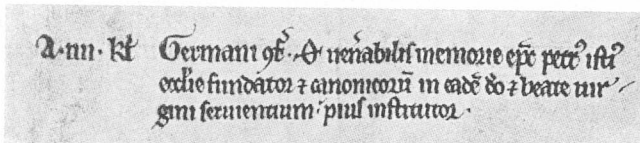 A · iiii · kł Germani ꝯf̄ · Et uen̄abilis memorie ep̄c petrꝰ istiꝰ
eccl̄ie fundator ⁊ canonicorū in eadē d̄o ⁊ beate uir
gini seruientium · pius institutor ·